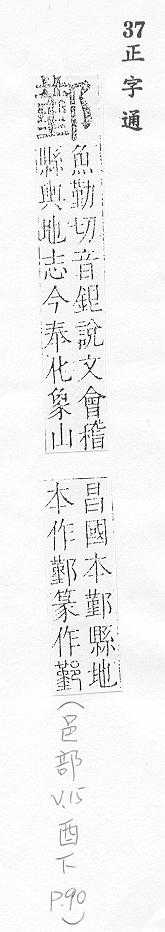 37
正字通
鄞
魚勤切音銀說文會稽
縣輿地志今奉化象山
昌國本鄞縣地
本作鄞篆作
(邑部 V.15 酉下 P.90)